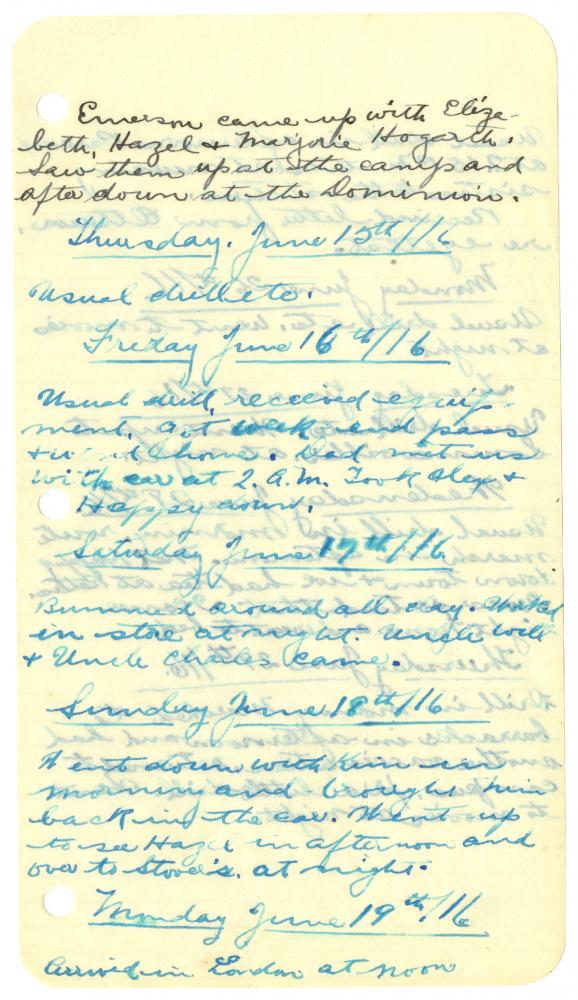 Emerson came up with Elize-
beth, Hazel & Marjorie Hogarth.
Saw them up at the camp and
after down at the Dominion.
Thursday. June 15th/16
Usual drill etc.
Friday June 16th/16
Usual drill, received equip-
ment, got week end pass
& went home. Dad met us
with car at 2. A.M. Took Alex &
Happy down.
Saturday June 17th/16
Bummed around all day. Worked
in store at night. Uncle Will
& Uncle Charles came.
Sunday June 18th/16
Went down with Kim in
morning and brought him
back in the car. Went up
to see Hazel in afternoon and
over to Stove's. at night.
Monday June 19th/16
Arrived in London at noon